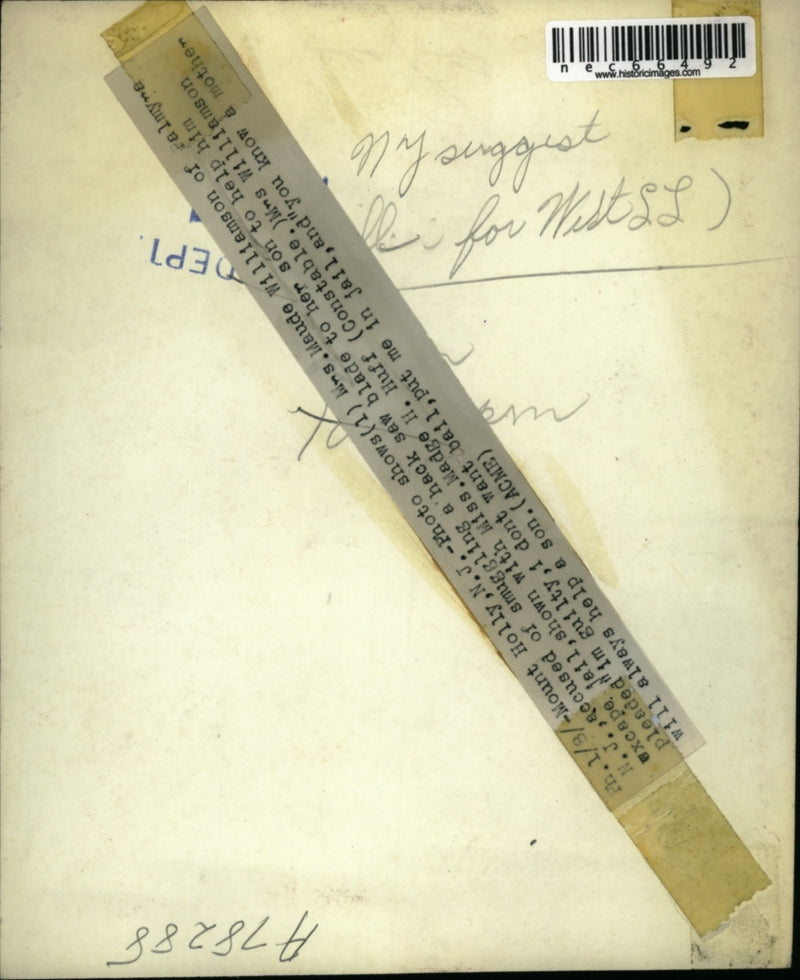 nec66492
www.historicimages.com
NY suggest
for West
DEPT.
Ph. 1/3/-Mount Holly,N.J.-Photo shows(1) Mrs.Maude Williamson of Palmyra
N.J.,accused of smuggling a hack saw blade to her son to help him
excape jail,shown with Miss.Madge H. Huff (Constable.)Mrs Williamson
pleaded"im guilty,i dont want bail,put me in jail,and"you know a mother
will always help a son.(ACME)
A78288